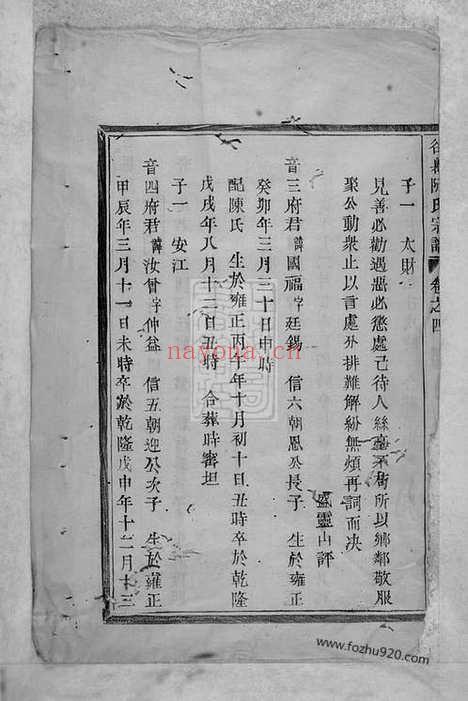 陳氏宗譜 卷之四
子一 太財
見善必勸遇惡必懲處己待人絲毫不苟所以鄉鄰敬服
聚公動衆止以一言處外排難解紛無煩再詞而决
盛靈山評
音三府君諱國福字廷錫 信六朝恩公長子 生於雍正
癸卯年三月三十日申時
配陳氏 生於雍正丙午年十月初十日丑時卒於乾隆
戊戌年八月十三日丑時 合葬時審坦
子一 安江
音四府君諱汝 字仲益 信五朝迎公次子 生於雍正
甲辰年三月十一日未時卒於乾隆戊申年十二月十三
nayona.cn
www.fozhu920.com